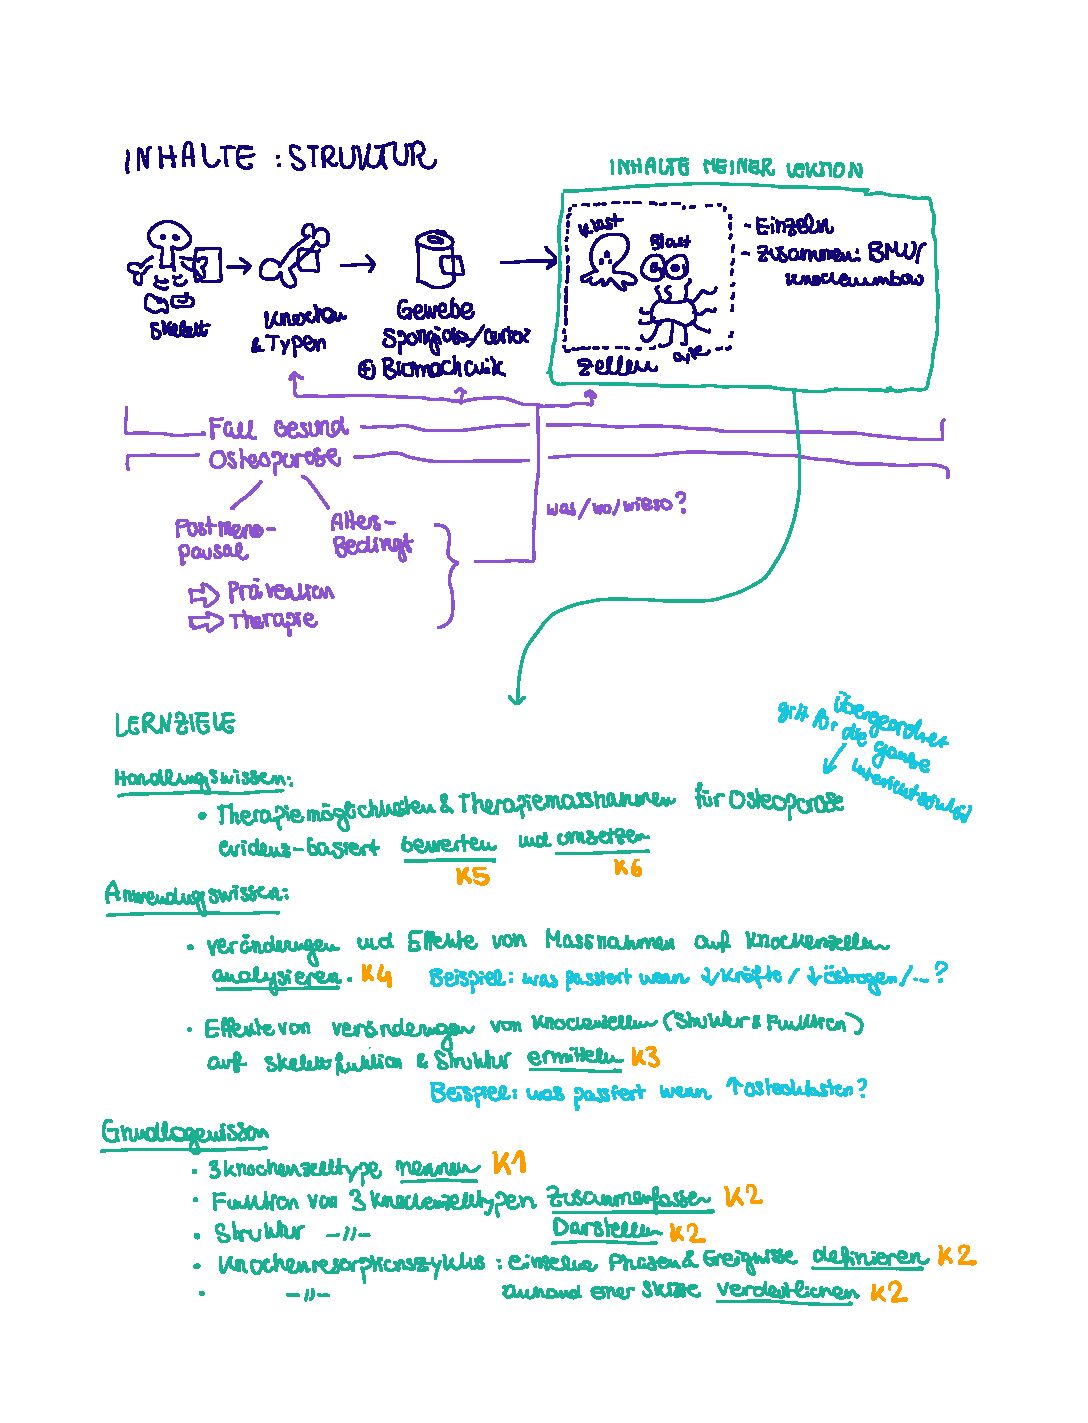 INHALTE : STRUKTUR
INHALTE MEINER LEKTION
Skelett
Knochen
& Typen
Gewebe
Spongiosa/Cortex
⊕ Biomechanik
Klast
Blast
Zyt
Zellen
- Einzeln
- Zusammen: BMU/
Knochenumbau
Fall Gesund
Osteoporose
Postmeno-
pausal
Alters-
Bedingt
⇨ Prävention
⇨ Therapie
was/wo/wieso?
LERNZIELE
Übergeordnet
gilt für die ganze
Handlungswissen:
• Therapiemöglichkeiten & Therapiemassnahmen für Osteoporose
evidenz-basiert bewerten und umsetzen
K5 K6
Anwendungswissen:
• Veränderungen und Effekte von Massnahmen auf Knochenzellen
analysieren. K4 Beispiel: was passiert wenn ↓Kräfte / ↓Östrogen/...?
• Effekte von Veränderungen von Knochenzellen (Struktur & Funktion)
auf Skelettfunktion & Struktur ermitteln K3
Beispiel: was passiert wenn ↑Osteoklasten?
Grundlagewissen
• 3 Knochenzelltype nennen K1
• Funktion von 3 Knochenzelltypen Zusammenfassen K2
• Struktur -//- Darstellen K2
• Knochenresorptionszyklus : einzelne Phasen & Ereignisse definieren K2
• -//- anhand einer Skizze verdeutlichen K2